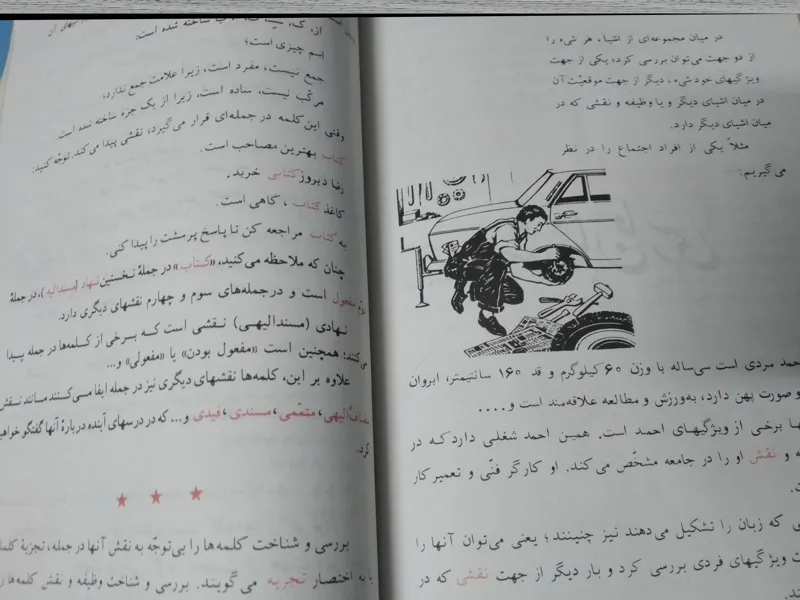 در میان مجموعه‌ای از اشیاء، هر شیء را
از دو جهت می‌توان بررسی کرد؛ یکی از جهت
ویژگیهای خود شیء، دیگر از جهت موقعیّت آن
در میان اشیای دیگر و یا وظیفه و نقشی که در
میان اشیای دیگر دارد.
مثلاً یکی از افراد اجتماع را در نظر
می‌گیریم:
احمد مردی است سی‌ساله با وزن ۶۰ کیلوگرم و قد ۱۶۰ سانتیمتر، ابروان
و صورت پهن دارد، به‌ورزش و مطالعه علاقه‌مند است و....
برخی از ویژگیهای احمد است. همین احمد شغلی دارد که در
و نقش او را در جامعه مشخّص می‌کند. او کارگر فنّی و تعمیرکار
که زبان را تشکیل می‌دهند نیز چنینند؛ یعنی می‌توان آنها را
ویژگیهای فردی بررسی کرد و بار دیگر از جهت نقشی که در
ساخته شده است:
اسم چیزی است؛
جمع نیست، مفرد است، زیرا علامت جمع ندارد؛
مرکّب نیست، ساده است، زیرا از یک جزء ساخته شده است.
وقتی این کلمه در جمله‌ای قرار می‌گیرد، نقشی پیدا می‌کند. توجّه کنید:
کتاب بهترین مصاحب است.
رضا دیروز کتابی خرید.
کاغذ کتاب، کاهی است.
به کتاب مراجعه کن تا پاسخ پرسشت را پیدا کنی.
چنان که ملاحظه می‌کنید، «کتاب» در جملهٔ نخستین نهاد (مسندالیه)، در جملهٔ
دوم مفعول است و در جمله‌های سوم و چهارم نقشهای دیگری دارد.
نهادی (مسندالیهی) نقشی است که برخی از کلمه‌ها در جمله پیدا
می‌کنند؛ همچنین است «مفعول بودن» یا «مفعولی» و...
علاوه بر این، کلمه‌ها نقشهای دیگری نیز در جمله ایفا می‌کنند مانند نقش
مضاف‌الیهی، متمّمی، مسندی، قیدی و... که در درسهای آینده دربارهٔ آنها گفتگو خواهیم
کرد.
بررسی و شناخت کلمه‌ها را بی‌توجّه به نقش آنها در جمله، تجزیهٔ کلمه
به اختصار تجزیه می‌گویند. بررسی و شناخت وظیفه و نقش کلمه‌ها را